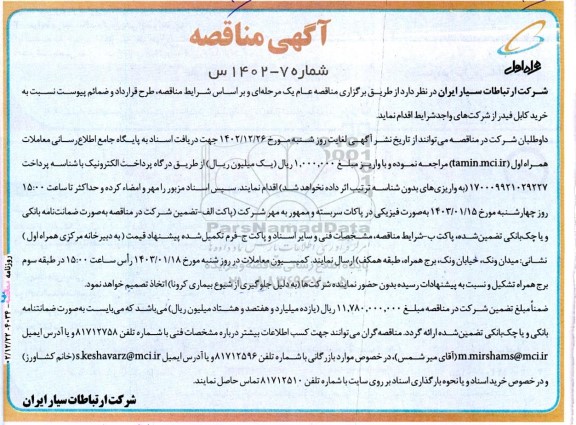 آگهی مناقصه
شماره ۷-۱۴۰۲ س
همراه اول
شرکت ارتباطات سیار ایران در نظر دارد از طریق برگزاری مناقصه عام یک مرحله‌ای و بر اساس شرایط مناقصه، طرح قرارداد و ضمائم پیوست نسبت به
خرید کابل فیدر از شرکت‌های واجد شرایط اقدام نماید.
داوطلبان شرکت در مناقصه می‌توانند از تاریخ نشر آگهی لغایت روز شنبه مورخ ۱۴۰۲/۱۲/۲۶ جهت دریافت اسناد به پایگاه جامع اطلاع رسانی معاملات
همراه اول (tamin.mci.ir) مراجعه نموده و با واریز مبلغ ۱,۰۰۰,۰۰۰ ریال (یک میلیون ریال) از طریق درگاه پرداخت الکترونیک با شناسه پرداخت
۱۷۰۰۰۹۹۲۱۰۲۹۲۲۷ (به واریزی‌های بدون شناسه ترتیب اثر داده نخواهد شد) اقدام نمایند. سپس اسناد مزبور را مهر و امضاء کرده و حداکثر تا ساعت ۱۵:۰۰
روز چهارشنبه مورخ ۱۴۰۳/۰۱/۱۵ به‌صورت فیزیکی در پاکات سربسته و ممهور به مهر شرکت (پاکت الف-تضمین شرکت در مناقصه به‌صورت ضمانت‌نامه بانکی
و یا چک‌بانکی تضمین‌شده، پاکت ب-شرایط مناقصه، مشخصات فنی و سایر اسناد و پاکت ج-فرم تکمیل‌شده پیشنهاد قیمت (به دبیرخانه مرکزی همراه اول)
نشانی: میدان ونک، خیابان ونک، برج همراه، طبقه همکف) ارسال نمایند. کمیسیون معاملات در روز شنبه مورخ ۱۴۰۳/۰۱/۱۸ رأس ساعت ۱۵:۰۰ در طبقه سوم
برج همراه تشکیل و نسبت به پیشنهادات رسیده بدون حضور نماینده شرکت‌ها (به دلیل جلوگیری از شیوع بیماری کرونا) اتخاذ تصمیم خواهد نمود.
ضمناً مبلغ تضمین شرکت در مناقصه مبلغ ۱۱,۷۸۰,۰۰۰,۰۰۰ ریال (یازده میلیارد و هفتصد و هشتاد میلیون ریال) می‌باشد که می‌بایست به‌صورت ضمانتنامه
بانکی و یا چک‌بانکی تضمین‌شده ارائه گردد. مناقصه‌گران می‌توانند جهت کسب اطلاعات بیشتر درباره مشخصات فنی با شماره تلفن ۸۱۷۱۲۷۵۸ و یا آدرس ایمیل
m.mirshams@mci.ir (آقای میر شمس)، در خصوص موارد بازرگانی با شماره تلفن ۸۱۷۱۲۵۹۶ و یا آدرس ایمیل s.keshavarz@mci.ir (خانم کشاورز)
و در خصوص خرید اسناد و یا نحوه بارگذاری اسناد بر روی سایت با شماره تلفن ۸۱۷۱۲۵۱۰ تماس حاصل نمایند.
شرکت ارتباطات سیار ایران
ParsNamadData
روزنامه